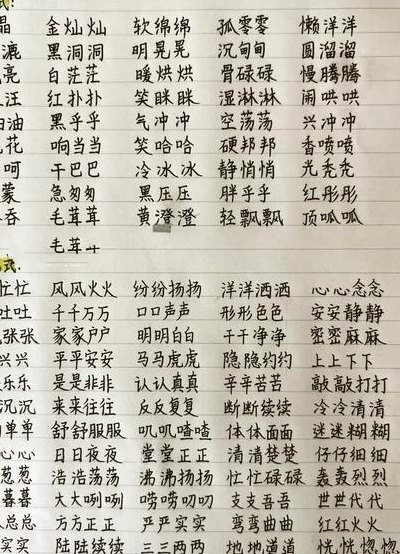 式:
晶 金灿灿 软绵绵 孤零零 懒洋洋
漉 黑洞洞 明晃晃 沉甸甸 圆溜溜
亮 白茫茫 暖烘烘 骨碌碌 慢腾腾
汪 红扑扑 笑眯眯 湿淋淋 闹哄哄
油 黑乎乎 气冲冲 空荡荡 兴冲冲
花 响当当 笑哈哈 硬邦邦 香喷喷
呵 干巴巴 冷冰冰 静悄悄 光秃秃
蒙 急匆匆 黑压压 胖乎乎 红彤彤
吞 毛茸茸 黄澄澄 轻飘飘 顶呱呱
毛茸
式.
忙忙 风风火火 纷纷扬扬 洋洋洒洒 心心念念
吐吐 千千万万 口口声声 形形色色 安安静静
张张 家家户户 明明白白 干干净净 密密麻麻
兴兴 平平安安 马马虎虎 隐隐约约 上上下下
乐乐 是是非非 认认真真 辛辛苦苦 敲敲打打
沉沉 来来往往 反反复复 断断续续 冷冷清清
单单 舒舒服服 叽叽喳喳 体体面面 迷迷糊糊
心心 日日夜夜 堂堂正正 清清楚楚 仔仔细细
葱葱 浩浩荡荡 沸沸扬扬 忙忙碌碌 轰轰烈烈
暮暮 大大咧咧 唠唠叨叨 支支吾吾 世世代代
总总 方方正正 严严实实 弯弯曲曲 红红火火
实实 陆陆续续 三三两两 地地道道 恍恍惚惚